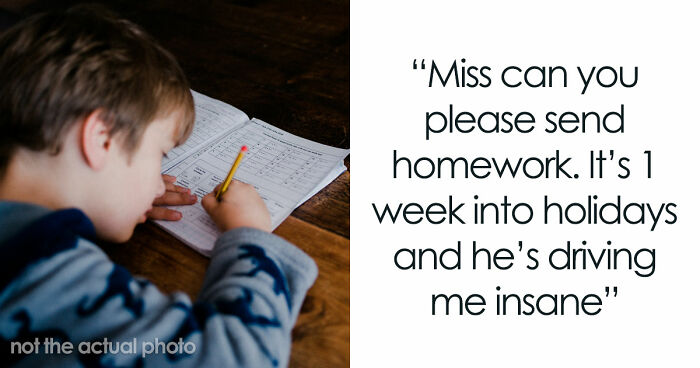 “Miss can you
please send
homework. It’s 1
week into holidays
and he’s driving
me insane”
not the actual photo